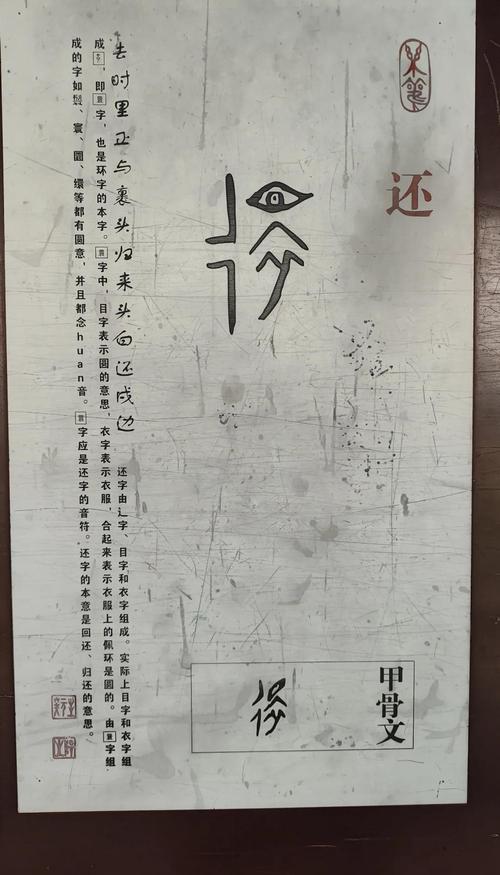 还
甲骨文
去时里正与裹头归来头白还戍边
还字由辶字、目字和衣字组成。实际上目字和衣字组
成，即睘字，也是环字的本字。睘字中，目字表示圆的意思，衣字表示衣服，合起来表示衣服上的佩环是圆的。由睘字组
成的字如鬟、寰、圜、環等都有圆意，并且都念huan音。睘字应是还字的音符。还字的本意是回还、归还的意思。